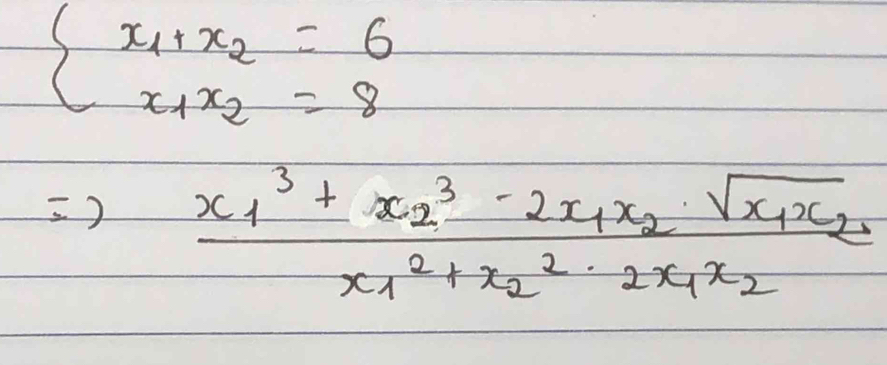 { x₁ + x₂ = 6
x₁x₂ = 8
=> x₁³ + x₂³ - 2x₁x₂ · √x₁x₂
x₁² + x₂² · 2x₁x₂